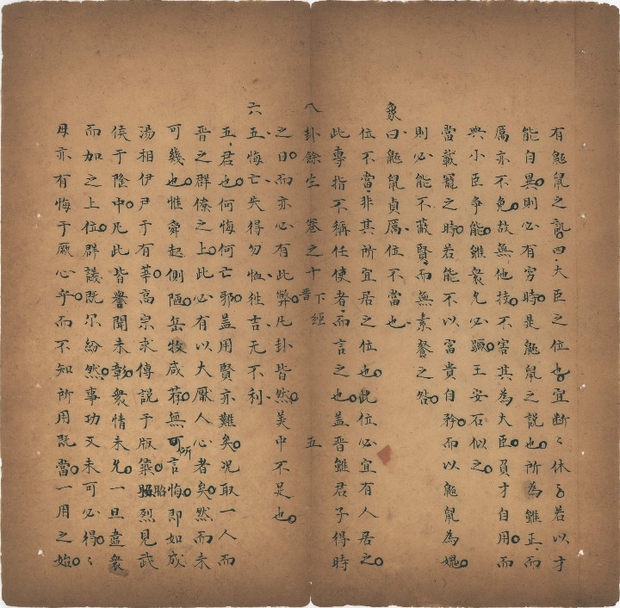 有鼫鼠之象曰大臣之位也宜斷斷休休若以才
能自異則必有窮時是鼫鼠之說也所為雖正而
厲亦不免故無他技不害其為大臣員才自用而
與小臣爭能雖衆允必蹶王安石似之
當蔽寵之時若能不以富貴自矜而以鼫鼠為媿
則必能不蔽賢而無素餐之咎
象曰鼫鼠貞厲位不當也
位不當非其所宜居之位也此位必宜有人居之
此專指不稱任使者而言之也蓋晉雖君子得時
八卦餘生 卷之十 下經 晉 五
之日而亦必有此弊凡卦皆然美中不足也
六五悔亡失得勿恤往吉无不利
五君也何悔何亡耶蓋用賢亦難矣况取一人而
晉之群僚之上此必有以大厭人心者矣然而未
可幾也惟舜起側陋岳牧咸荐無可所言悔即如成
湯相伊尹于有莘高宗求傳說于版築昭烈見武
侯于隆中凡此皆譽聞未彰衆情未允一旦盡衆
而加之上位群議既不紛然事功又未可必得得
毋亦有悔于厥心乎而不知所用既當一用之始